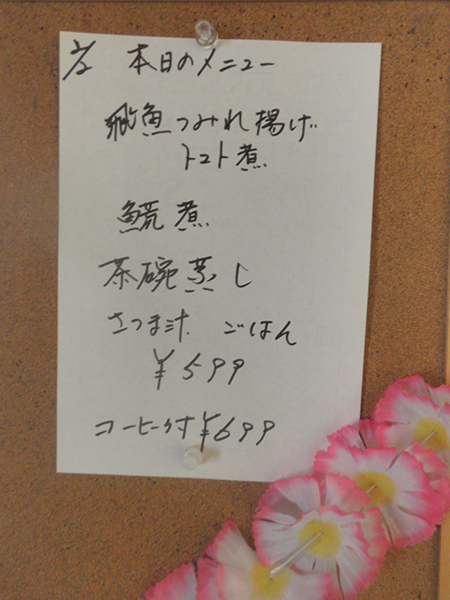 本日のメニュー
飛魚つみれ揚げ
トマト煮
茶碗蒸し
さつま汁 ごはん
¥599
コーヒー付¥699